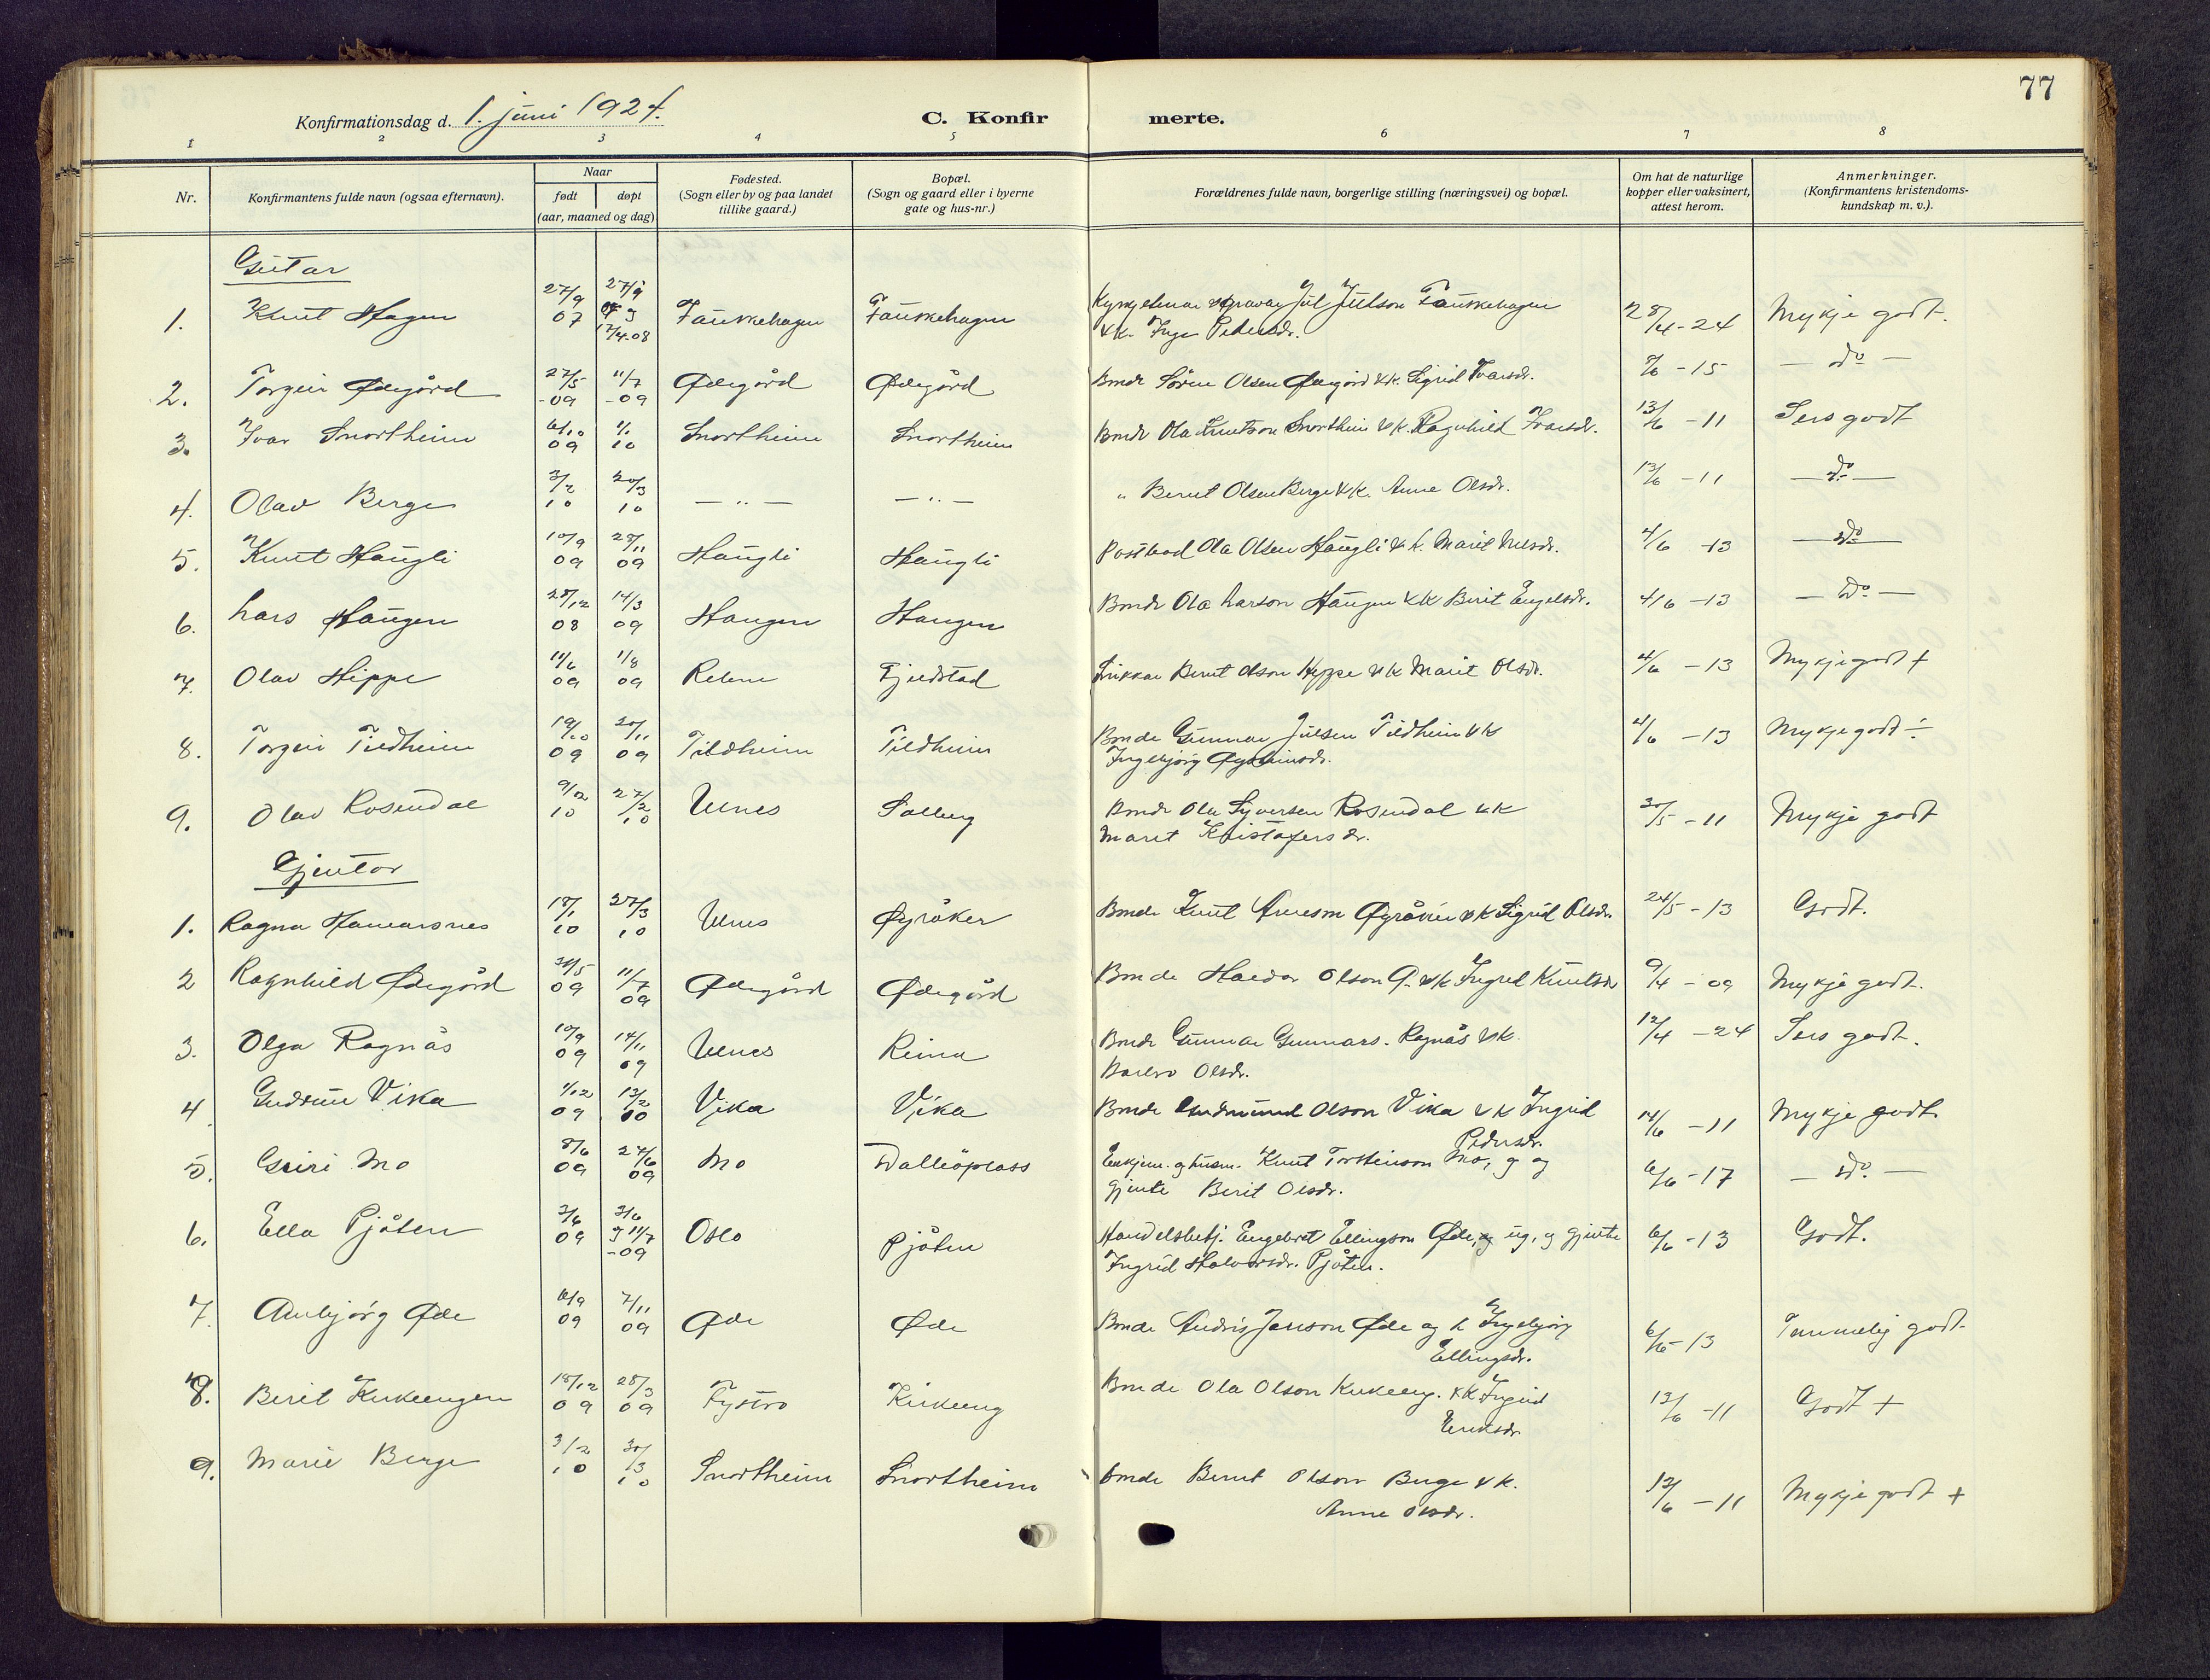 77
Konfirmationsdag d. 1. juni 1924.
C. Konfirmerte.
1 2 3 4 5 6 7 8
Nr.
Konfirmantens fulde navn (ogsaa efternavn).
Naar
født døpt
(aar, maaned og dag)
Fødested.
(Sogn eller by og paa landet
tillike gaard.)
Bopæl.
(Sogn og gaard eller i byerne
gate og hus-nr.)
Forældrenes fulde navn, borgerlige stilling (næringsvei) og bopæl.
Om hat de naturlige
kopper eller vaksinert,
attest herom.
Anmerkninger.
(Konfirmantens kristendoms-
kundskap m. v.).
Gutar
1. Knut Hagen 27/9 07 27/9 07 12/4-08 Fauskehagen Fauskehagen Jul Julson Fauskehagen 28/4-24 Mykje godt.
& k. Inga Pedersdr.
2. Torgeir Ødegård 27/5 -09 11/7 -09 Ødegård Ødegård Bonde Sören Olsen Ødegård & k. Sigrid Ivarsdr. 9/6 -15 — do —
3. Ivar Snortheim 6/10 09 1/1 10 Snortheim Snortheim Bonde Ola Knutson Snortheim & k. Ragnhild Ivarsdr. 13/6 -11 Sers godt
4. Olav Berge 3/2 10 20/3 10 — " — — " — " Bernt Olsen Berge & k. Anne Olsdr. 13/6 -11 — do —
5. Knut Haugli 10/9 09 28/11 09 Haugli Haugli Postbod Ola Olsen Haugli & k. Marit Nilsdr. 4/6 -13 — do —
6. Lars Haugen 28/12 08 14/3 09 Haugen Haugen Bonde Ola Larson Haugen & k Berit Engelsdr. 4/6 -13 — do —
7. Olav Hippe 11/6 09 1/8 09 Reien Fjeldstad Snikkar Bernt Olson Hippe & k Marit Olsdr. 4/6 -13 Mykje godt +
8. Torgeir Tildheim 19/10 09 20/11 09 Tildheim Tildheim Bonde Gunnar Julsen Tildheim & k 4/6 -13 Mykje godt ÷
Ingebjörg Øysteinsdr.
9. Olav Rosendal 9/2 10 27/2 10 Ulnes Solberg Bonde Ola Syversen Rosendal & k 30/5 -11 Mykje godt
Marit Kristofersdr.
Gjentor
1. Ragna Hamarsnes 18/1 10 27/3 10 Ulnes Øyråker Bonde Knut Arneson Øyråker & k Sigrid Olsdr. 24/5 -13 Godt.
2 Ragnhild Ødegård 31/5 09 11/7 09 Ødegård Ødegård Bonde Halvdor Olson Ø. & k Ingrid Knutsdr 9/4 - 09 Mykje godt.
3. Olga Ragnås 10/9 09 14/11 09 Ulnes Reina Bonde Gunnar Gunnars. Ragnås & k. 12/4 -24 Sers godt.
Barbro Olsdr.
4 Gudrun Vika 1/12 09 13/2 10 Vika Vika Bonde Gudmund Olson Vika & k Ingrid 14/6 -11 Mykje godt.
Pedersdr.
5. Guri Mo 8/6 09 27/6 09 Mo Enkjem. og husm. Knut Torsteinson Mo, g og 6/6 -17 — do. —
gjente Berit Olsdr.
6. Ella Pjåten 3/6 09 3/6 g 11/7 -09 Oslo Pjåten Handelsbetj. Engebret Ellingson Øde, ug, g gjente 6/6 -13 Godt.
Ingrid Halvorsdr. Pjåten.
7. Aubjörg Øde 6/9 09 7/11 09 Øde Øde Bonde Andris Jonson Øde og k Ingebjörg 6/6 -13 Temmelig godt
Ellingsdr.
8. Berit Kirkeengen 18/12 09 28/3 09 Fystro Kirkeeng Bonde Ola Olson Kirkeeng. & k Ingrid 13/6 -11 Godt +
Eriksdr.
9. Marie Berge 3/2 10 30/3 10 Snortheim Snortheim bonde Bernt Olson Berge & k. 13/6 -11 Mykje godt +
Anne Olsdr.